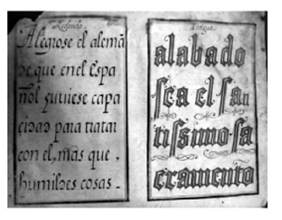 Redondo
Alegrose el alemã
de que en el Espa
ñol huuiese capa
cidad para tratar
con el, mas que
humildes cosas.
Antigua
alabado
sea el san
tissimo sa
cramento